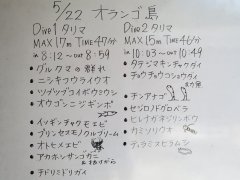 5/22 オランゴ島
Dive1 タリマ
MAX 17m TIME 47分
in 8:12 〜 out 8:59
・グルクマの群れ
・ニシキフウライウオ
・ゾウゲイロウミウシ
・オウゴンニジギンポ
・イッポンテグリ
・プリンセスモノクルブリーム
・オトヒメエビ
・アカホシサンゴガニ
・チドリミドリガイ
Dive2 タリマ
MAX 15m TIME 46分
in 10:03 〜 out 10:49
・タテジマキンチャクダイ
・チョウチョウコショウダイ
・チンアナゴ
・ゼジロノドグロベラ
・ヒレナガネジリンボウ
・カミソリウオ
・ティラミスヒラムシ